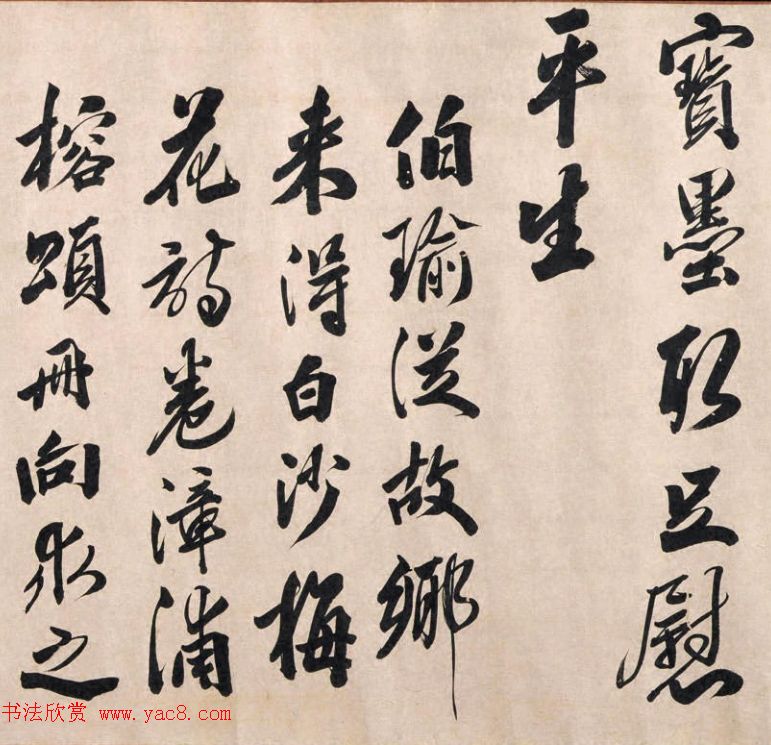 寶墨取足慰
平生
伯瑜從故鄉
来得白沙梅
花詩卷漳浦
榕頌冊向永之
书法欣赏 www.yac8.com